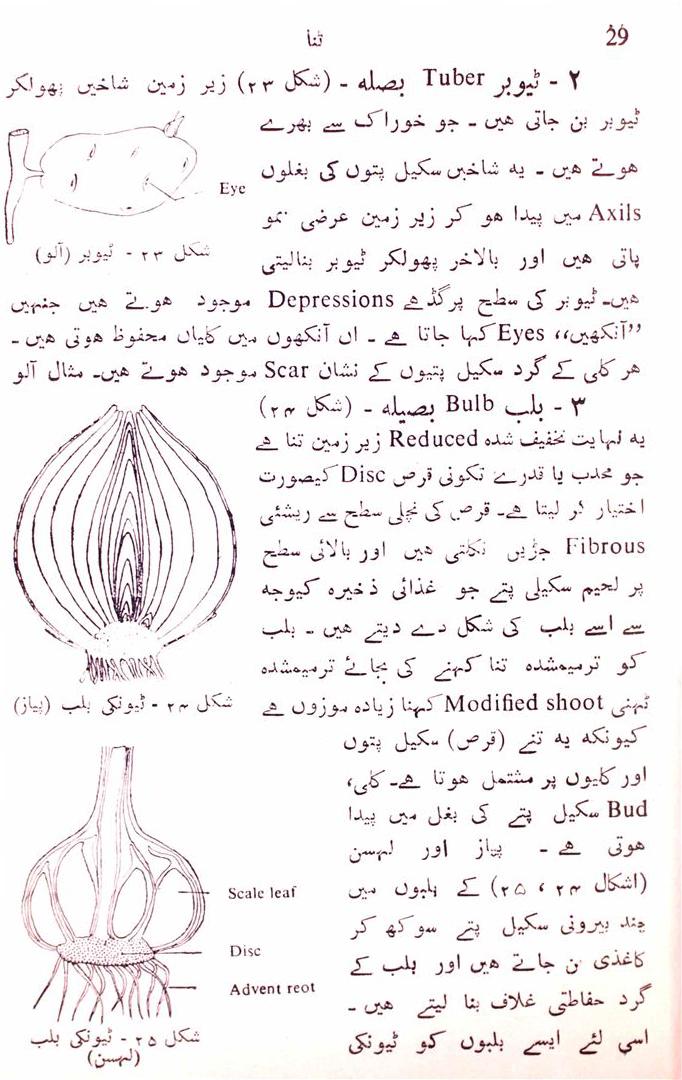 تنا
29
۲ - ٹیوبر Tuber بصلہ - (شکل ۲۳) زیر زمین شاخیں پھولکر
ٹیوبر بن جاتی ھیں - جو خوراک سے بھرے
ھوتے ھیں - یہ شاخیں سکیل پتوں کی بغلوں
Axils میں پیدا ھو کر زیر زمین عرضی نمو
پاتی ھیں اور بالاخر پھولکر ٹیوبر بنالیتی
ھیں- ٹیوبر کی سطح پرگڈھے Depressions موجود ھوتے ھیں جنھیں
”آنکھیں“ Eyes کہا جاتا ھے - ان آنکھوں میں کلیاں محفوظ ھوتی ھیں -
ھر کلی کے گرد سکیل پتیوں کے نشان Scar موجود ھوتے ھیں- مثال آلو
Eye
شکل ۲۳ - ٹیوبر (آلو)
۳ - بلب Bulb بصیلہ - (شکل ۲۴)
یہ نہایت تخفیف شدہ Reduced زیر زمین تنا ھے
جو محدب یا قدرے تکونی قرص Disc کیصورت
اختیار کر لیتا ھے- قرص کی نچلی سطح سے ریشئی
Fibrous جڑیں نکلتی ھیں اور بالائی سطح
پر لحیم سکیلی پتے جو غذائی ذخیرہ کیوجہ
سے اسے بلب کی شکل دے دیتے ھیں - بلب
کو ترمیمشدہ تنا کہنے کی بجائے ترمیمشدہ
ٹہنی Modified shoot کہنا زیادہ موزوں ھے
شکل ۲۴ - ٹیونکی بلب (پیاز)
کیونکہ یہ تنے (قرص) سکیل پتوں
اور کلیوں پر مشتمل ھوتا ھے- کلی،
Bud سکیل پتے کی بغل میں پیدا
ھوتی ھے - پیاز اور لہسن
(اشکال ۲۴ ، ۲۵) کے بلبوں میں
چند بیرونی سکیل پتے سوکھ کر
کاغذی بن جاتے ھیں اور بلب کے
گرد حفاطتی غلاف بنا لیتے ھیں -
اسی لئے ایسے بلبوں کو ٹیونکی
Scale leaf
Disc
Advent reot
شکل ۲۵ - ٹیونکی بلب
(لہسن)